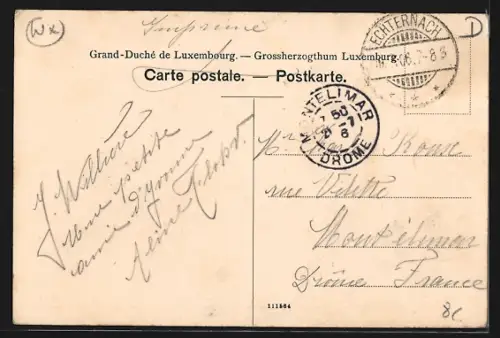 Wx
Imprimé
D
Grand-Duché de Luxembourg. — Grossherzogthum Luxemburg.
Carte postale. — Postkarte.
ECHTERNACH
7-8 S
MONTELIMAR
DROME
J. Willière
Une petite
amie d'Yvonne
Aline
rue Villette
Montélimar
Drôme France
111564
8€